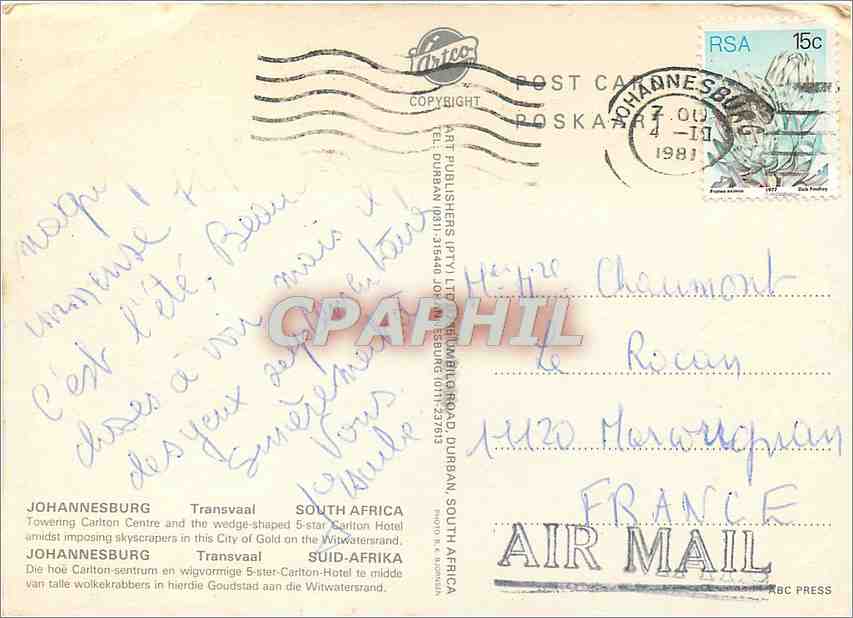 Artco
COPYRIGHT
POST CARD
POSKAART
RSA 15c
JOHANNESBURG
1981
Protea 1977 Dick Findlay
immense
C'est l'été, Beau
choses à voir mais il
des yeux
Sincèrement
Vous
ART PUBLISHERS (PTY) LTD UMBILO ROAD, DURBAN, SOUTH AFRICA
TEL: DURBAN (031)-315440 JOHANNESBURG (011)-237613
PHOTO: R. K. BJORNSEN
CPAPHIL
Chaumont
Le Rocan
11120 Marcorignan
FRANCE
AIR MAIL
JOHANNESBURG Transvaal SOUTH AFRICA
Towering Carlton Centre and the wedge-shaped 5-star Carlton Hotel
amidst imposing skyscrapers in this City of Gold on the Witwatersrand.
JOHANNESBURG Transvaal SUID-AFRIKA
Die hoë Carlton-sentrum en wigvormige 5-ster-Carlton-Hotel te midde
van talle wolkekrabbers in hierdie Goudstad aan die Witwatersrand.
ABC PRESS